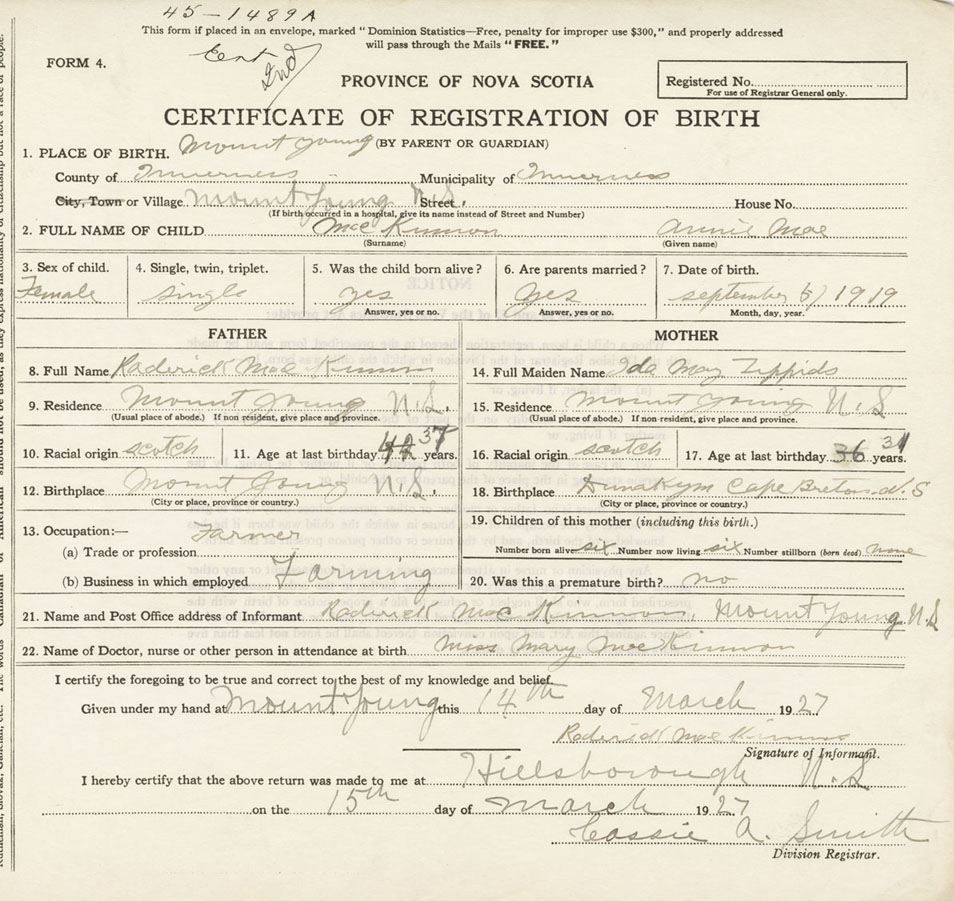 45-1489A
This form if placed in an envelope, marked "Dominion Statistics—Free, penalty for improper use $300," and properly addressed
will pass through the Mails "FREE."
FORM 4.
PROVINCE OF NOVA SCOTIA
Registered No.
For use of Registrar General only.
CERTIFICATE OF REGISTRATION OF BIRTH
(BY PARENT OR GUARDIAN)
1. PLACE OF BIRTH. Mount Young
County of Inverness Municipality of Inverness
City, Town or Village Mount Young N.S. Street, House No.
(If birth occurred in a hospital, give its name instead of Street and Number)
2. FULL NAME OF CHILD Mac Kinnon Annie Mae
(Surname) (Given name)
3. Sex of child. 4. Single, twin, triplet. 5. Was the child born alive? 6. Are parents married? 7. Date of birth.
Female single yes yes september 5/1919
Answer, yes or no. Answer, yes or no. Month, day, year.
FATHER MOTHER
8. Full Name Raderick Mac Kinnon 14. Full Maiden Name Ida May
9. Residence Mount Young N.S. 15. Residence Mount Young N.S
(Usual place of abode.) If non resident, give place and province. (Usual place of abode.) If non-resident, give place and province.
10. Racial origin scotch 11. Age at last birthday 42 37 years. 16. Racial origin scotch 17. Age at last birthday 36 31 years.
12. Birthplace Mount Young N.S. 18. Birthplace Cape Breton N.S
(City or place, province or country.) (City or place, province or country.)
13. Occupation:— Farmer 19. Children of this mother (including this birth.)
(a) Trade or profession Number born alive six Number now living six Number stillborn (born dead) none
(b) Business in which employed Farming 20. Was this a premature birth? no
21. Name and Post Office address of Informant Raderick Mac Kinnon, Mount Young N.S
22. Name of Doctor, nurse or other person in attendance at birth Miss Mary MacKinnon
I certify the foregoing to be true and correct to the best of my knowledge and belief.
Given under my hand at Mount Young this 14th day of March 1927
Raderick Mac Kinnon
Signature of Informant.
I hereby certify that the above return was made to me at Hillsborough N.S
on the 15th day of March 1927
Cassie A. Smith
Division Registrar.